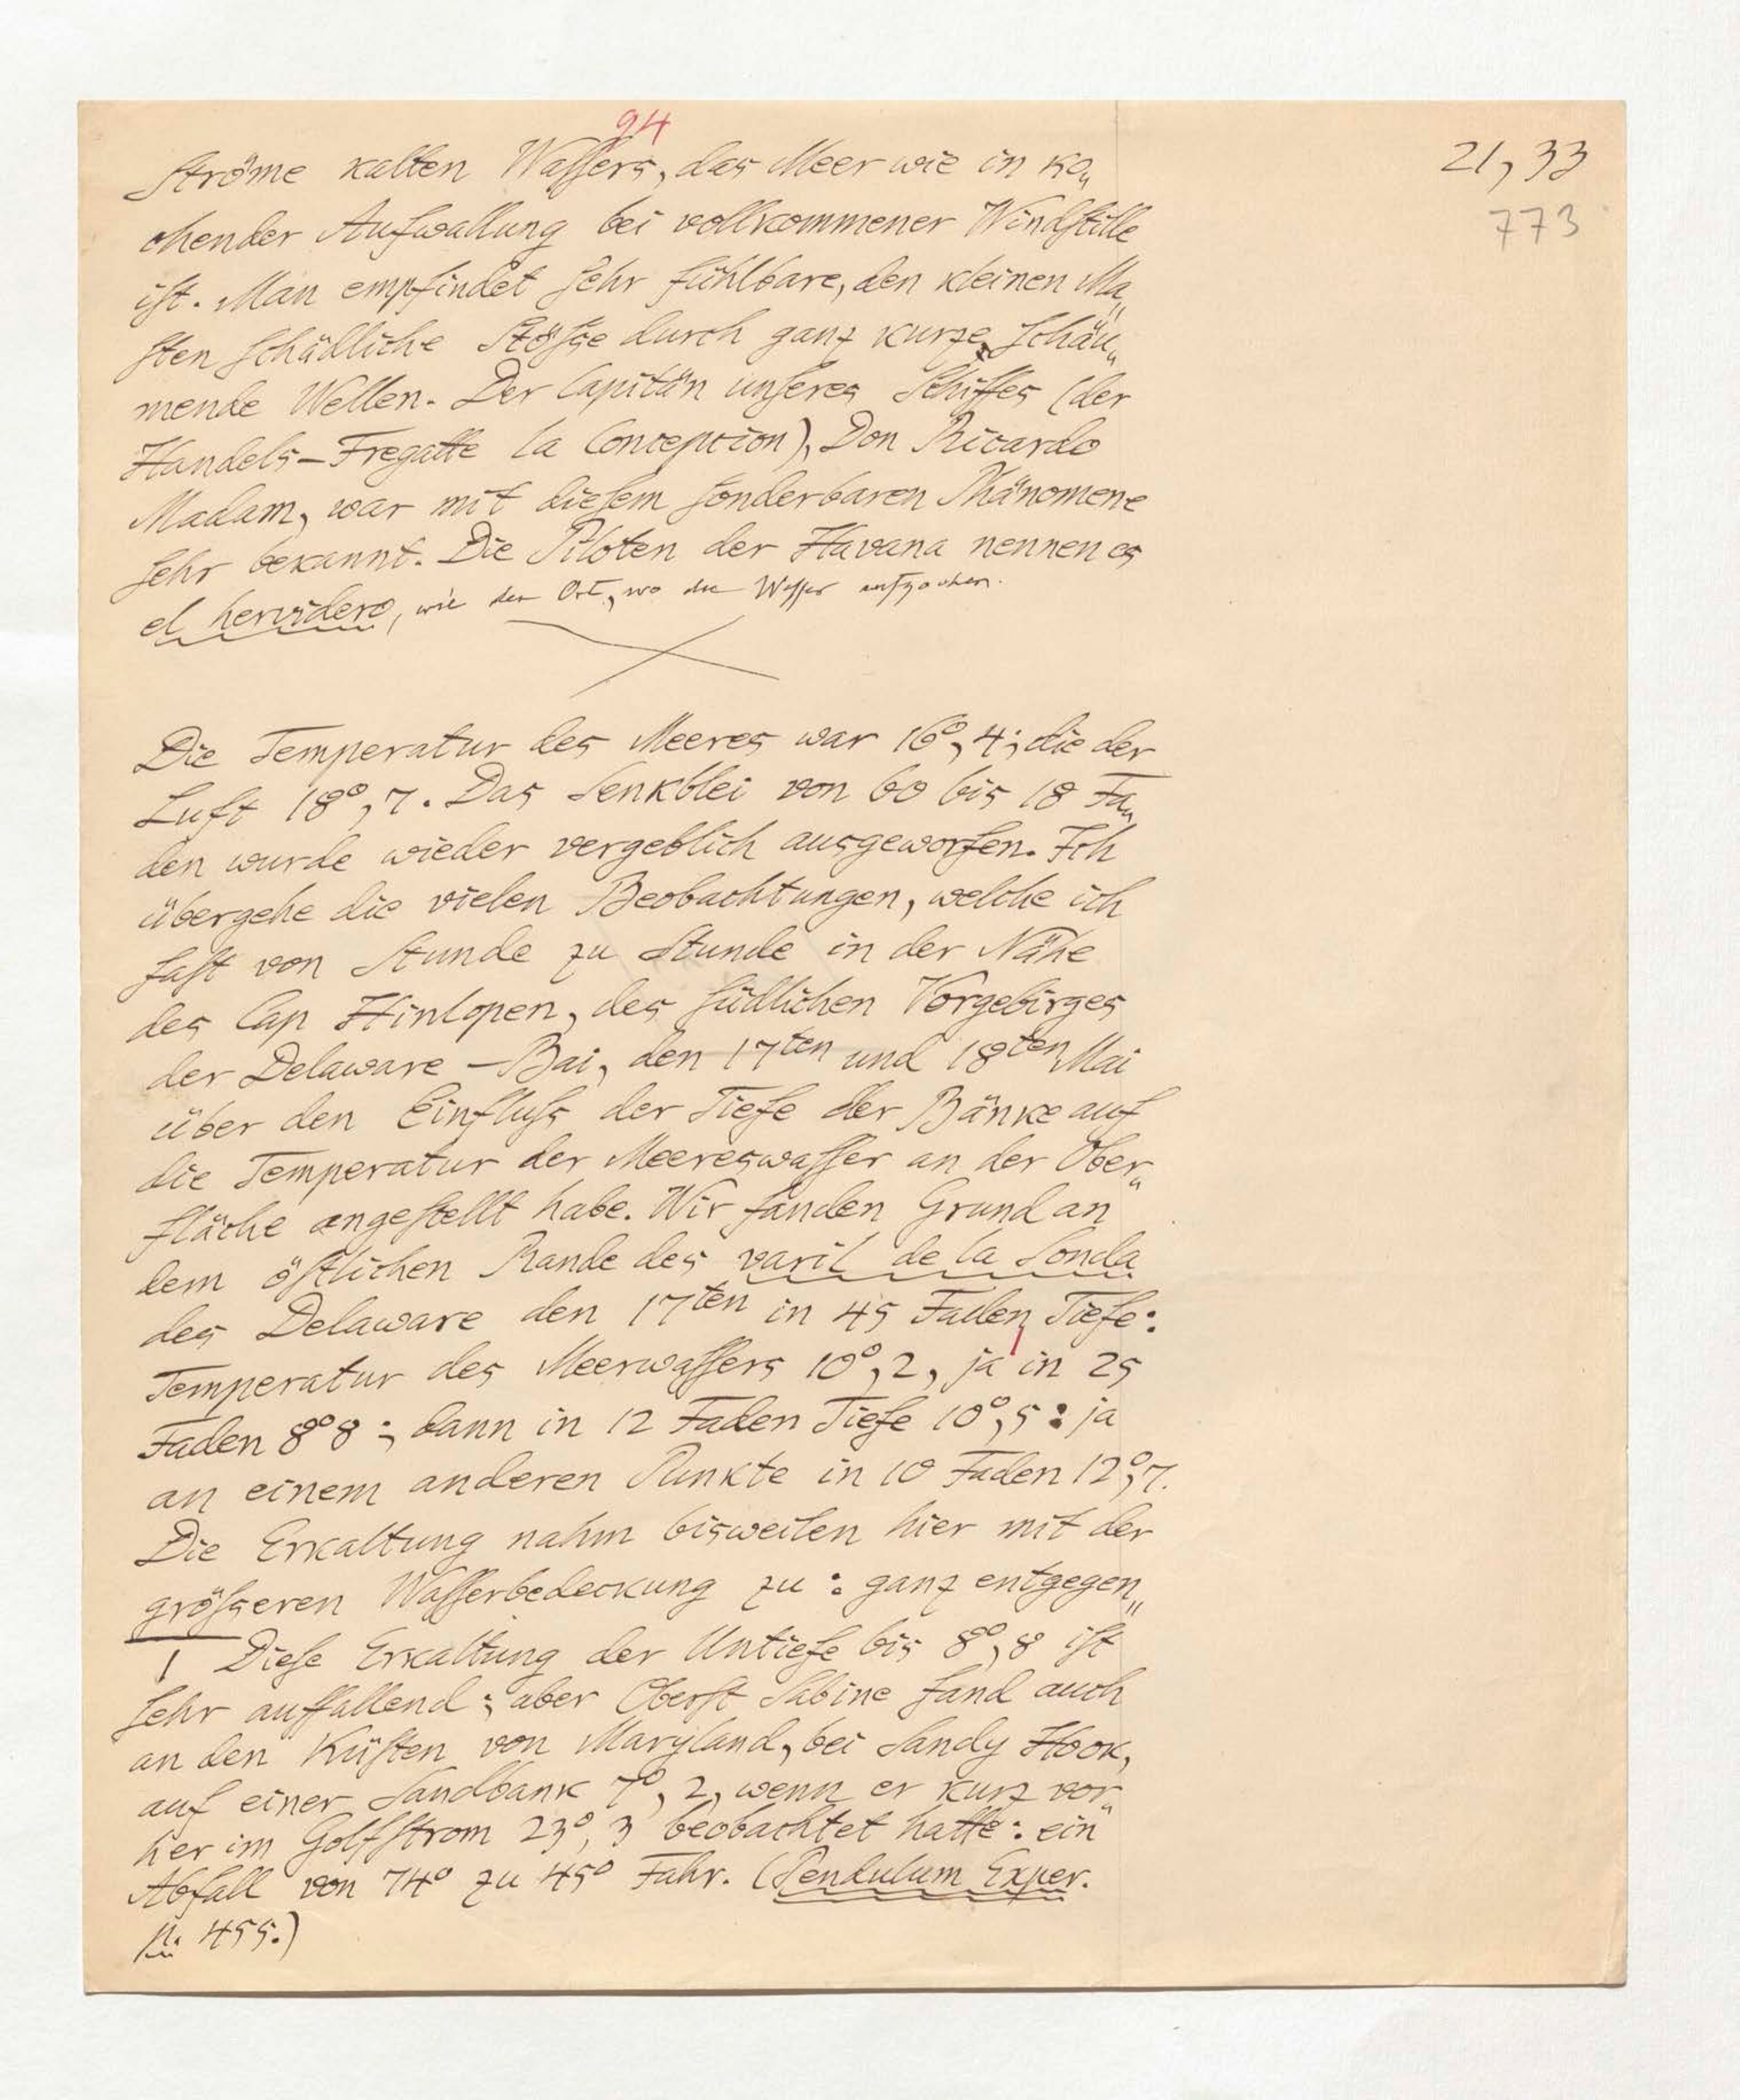 94
21, 33
773
Ströme kalten Waſſers, das Meer wie in ko„
chender Aufwallung bei vollkommener Windſtille
iſt. Man empfindet ſehr fühlbare, den kleinen Ma„
ſten ſchädliche Stöſse durch ganz kurze ſchäu„
mende Wellen. Der Capitän unſeres Schiffes (der
Handels-Fregatte la Concepcion), Don Ricardo
Madam, war mit dieſem ſonderbaren Phänomene
ſehr bekannt. Die Piloten der Havana nennen es
el hervidero, wie der Ort, wo die Waſſer aufkochen.
Die Temperatur des Meeres war 16°, 4; die der
Luft 18°, 7. Das Senkblei von 60 bis 18 Fa„
den wurde wieder vergeblich ausgeworfen. Ich
übergehe die vielen Beobachtungen, welche ich
faſt von Stunde zu Stunde in der Nähe
des Cap Hinlopen, des ſüdlichen Vorgebirges
der Delaware-Bai, den 17ten und 18ten Mai
über den Einfluſs der Tiefe der Bänke auf
die Temperatur der Meereswaſſer an der Ober„
fläche angeſtellt habe. Wir fanden Grund an
dem öſtlichen Rande des varil de la Sonda
des Delaware den 17ten in 45 Faden Tiefe:
Temperatur des Meerwaſſers 10°, 2, ja in 25
Faden 8°8; dann in 12 Faden Tiefe 10°, 5: ja
an einem anderen Punkte in 10 Faden 12°, 7.
Die Erkaltung nahm bisweilen hier mit der
gröſseren Waſſerbedeckung zu: ganz entgegen„
1 Dieſe Erkaltung der Untiefe bis 8°, 8 iſt
ſehr auffallend; aber Oberſt Sabine fand auch
an den Küſten von Maryland, bei Sandy Hook,
auf einer Sandbank 7°, 2, wenn er kurz vor„
her im Golfſtrom 23°, 3 beobachtet hatte: ein
Abfall von 74° zu 45° Fahr. (Pendulum Exper.
p. 455.)